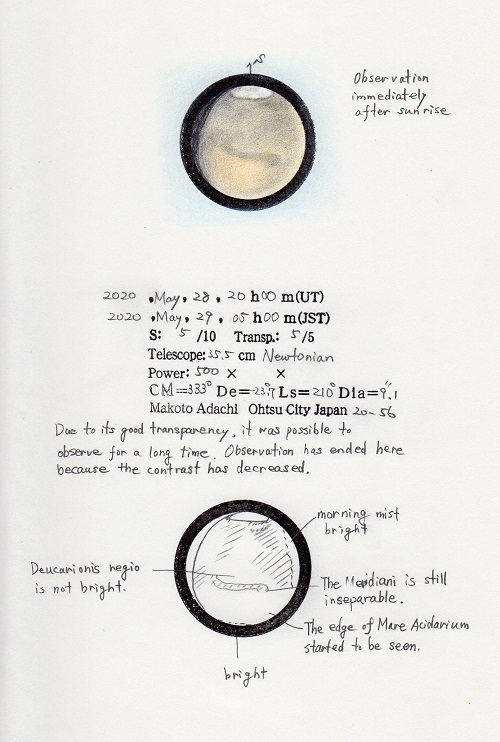 S
Observation
immediately
after sunrise
2020 , May, 28, 20 h00 m(UT)
2020 , May, 29, 05 h00 m(JST)
S: 5 /10 Transp.: 5/5
Telescope:35.5 cm Newtonian
Power: 500 × ×
CM=333° De=-23.°7 Ls=210° Dia=9.″1
Makoto Adachi Ohtsu City Japan 20-56
Due to its good transparency, it was possible to
observe for a long time. Observation has ended here
because the contrast has decreased.
morning mist
bright
Deucarionis regio
is not bright.
The Meridiani is still
inseparable.
The edge of Mare Acidarium
started to be seen.
bright